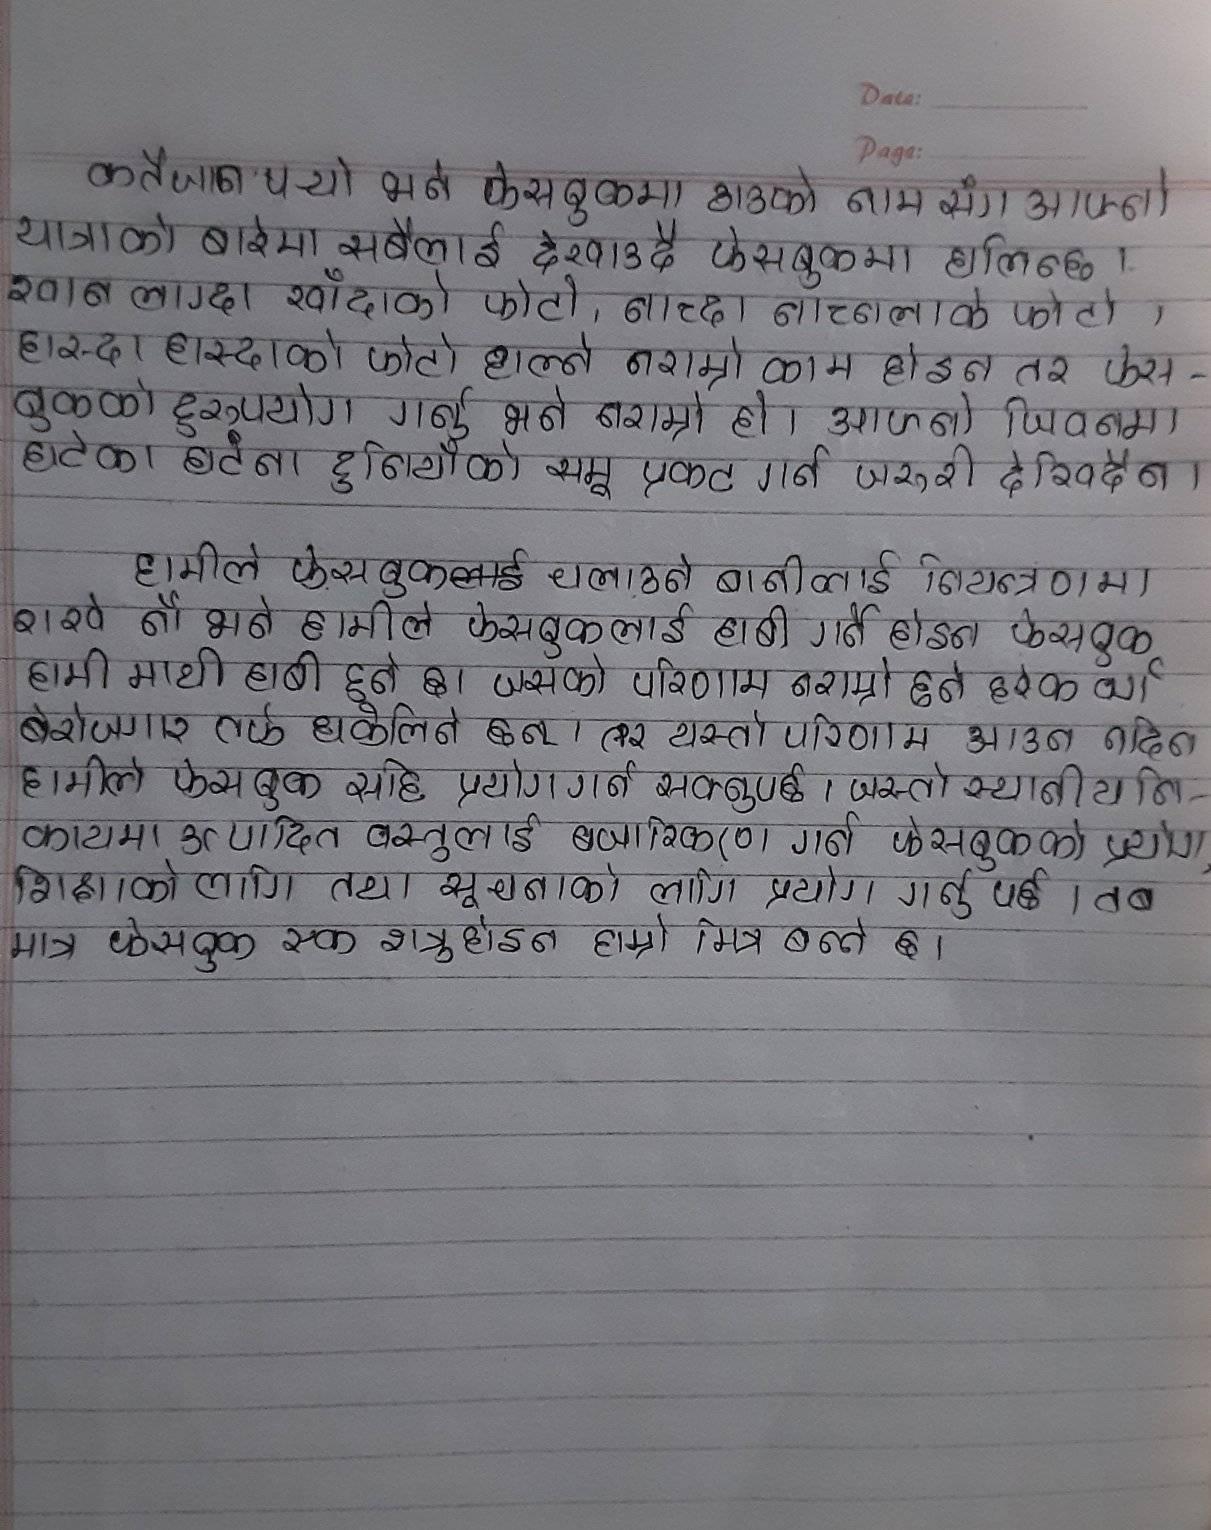 Date:
Page:
कतै जान पर्यो भने फेसबुकमा ठाउको नाम सँग आफ्नो
यात्राको बारेमा सबैलाई देखाउदै फेसबुकमा घालिन्छ ।
खान लाग्दा खाँदाको फोटो, नाच्दा नाच्नलाके फोटो ,
हास्दा हास्दाको फोटो हाल्ने नराम्रो काम होइन तर फेस-
बुकको दुरुपयोग गर्नु भने नराम्रो हो । आफ्नो जिवनमा
घटेका घटना दुनियाँको सामू प्रकट गर्न जरूरी देखिदैन ।
हामीले फेसबुकलाई चलाउने बानीलाई नियन्त्रणमा
राखे नौ भने हामीले फेसबुकलाई हाबी गर्ने होइन फेसबुक
हामी माथी हाबी हुने छ। जसको परिणाम नराम्रो हुने हरेक
बेरोजगार तर्फ धकेलिने छन् । तर यस्तो परिणाम आउन नदिन
हामीले फेसबुक सहि प्रयोग गर्न सक्नुपर्छ । जस्तो स्थानीय नि-
कायमा उत्पादित वस्तुलाई बजारिकरण गर्न फेसबुकको प्रयोग,
शिक्षाको लागि तथा सूचनाको लागि प्रयोग गर्नु पर्छ । तब
मात्र फेसबुक एक शत्रु होइन हाम्रो मित्र बन्ने छ ।